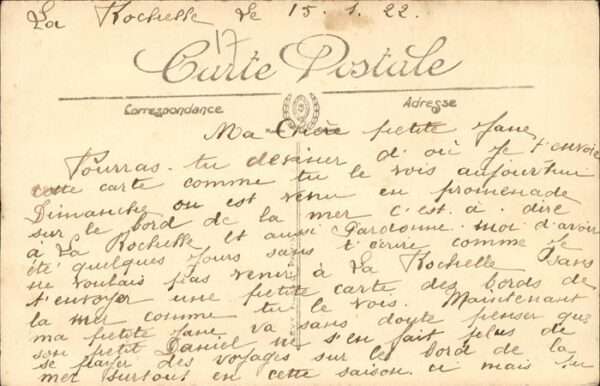 La Rochelle le 15.1.22.
17
Carte Postale
Correspondance
Adresse
Ma Chère petite Jane
Pourras-tu deviner d'où je t'envoie
cette carte comme tu le vois aujourd'hui
Dimanche on est venu en promenade
sur le bord de la mer c'est à dire
à La Rochelle Et aussi Pardonne-moi d'avoir
été quelques jours sans t'écrire comme je
ne voulais pas venir à La Rochelle sans
t'envoyer une petite carte des bords de
la mer comme tu le vois. Maintenant
ma petite Jane va sans doute penser que
son petit Daniel ne s'en fait plus de
se payer des voyages sur le bord de la
mer surtout en cette saison ci mais tu